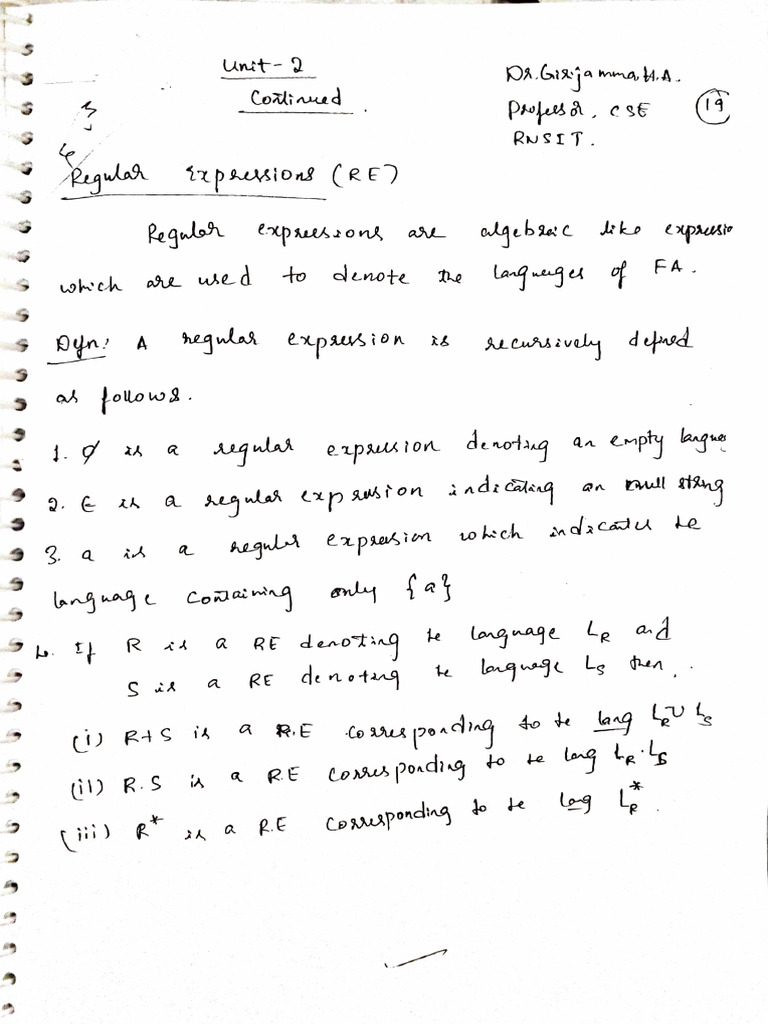 Unit - 2
Continued.
Dr. Girijamma H.A.
Professor, CSE
RNSIT.
19
Regular Expressions (RE)
Regular expressions are algebraic like expressio
which are used to denote the languages of FA.
Dfn: A regular expression is recursively defined
as follows.
1. ∅ is a regular expression denoting an empty langue
2. ϵ is a regular expression indicating an null string
3. a is a regular expression which indicates te
language containing only {a}
4. If R is a RE denoting te language L_R and
S is a RE denoting te language L_S then,.
(i) R+S is a R.E corresponding to te lang L_R ∪ L_S
(ii) R.S is a R.E corresponding to te lang L_R . L_S
(iii) R* is a R.E corresponding to te lang L_R*.